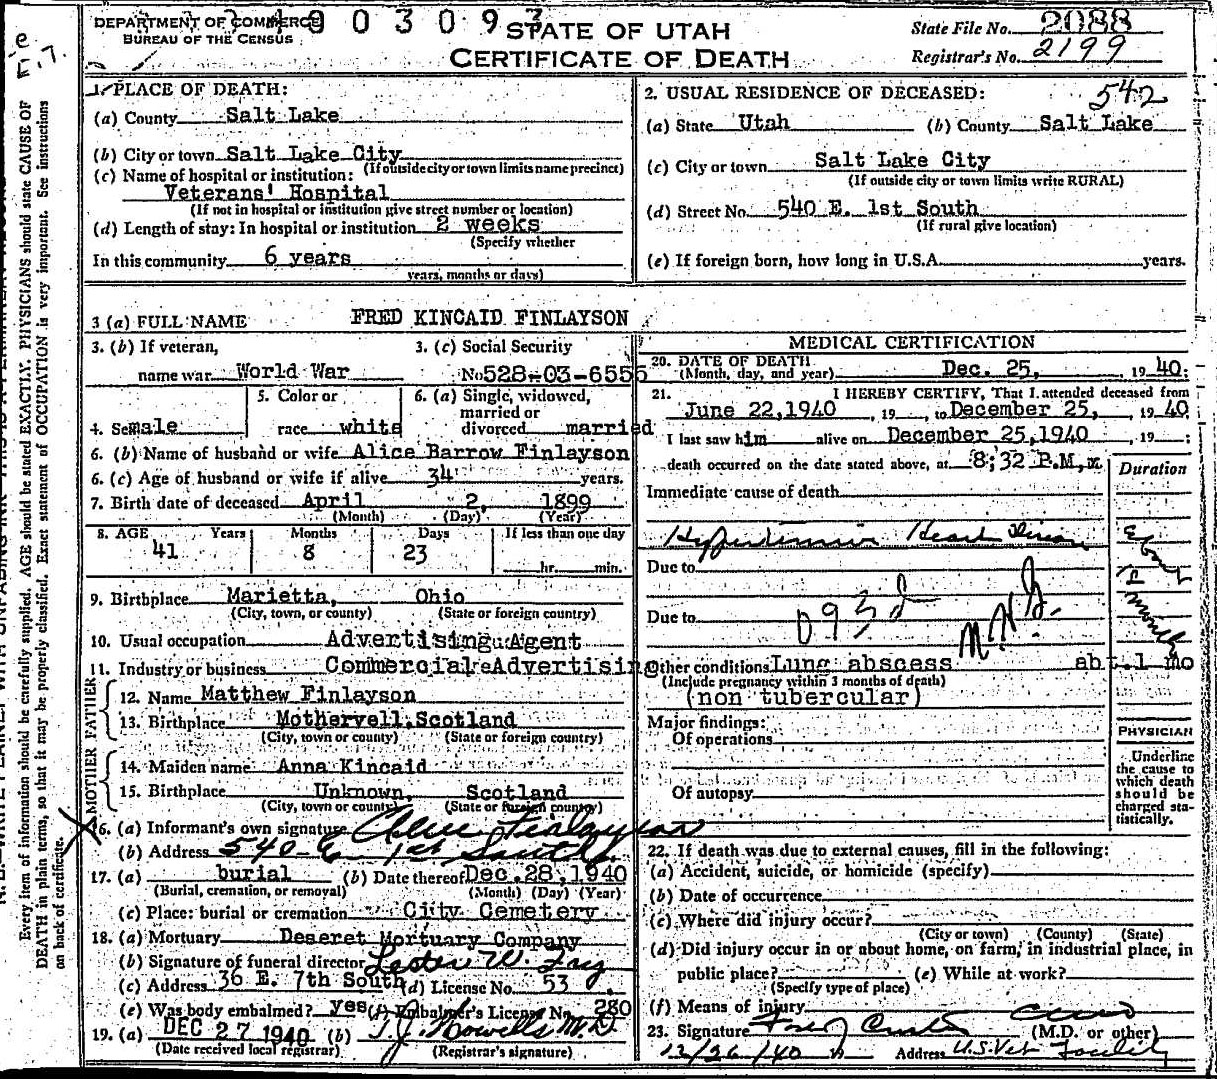 DEPARTMENT OF COMMERCE
BUREAU OF THE CENSUS
STATE OF UTAH
CERTIFICATE OF DEATH
State File No. 2088
Registrar's No. 2199
1. PLACE OF DEATH:
(a) County Salt Lake
(b) City or town Salt Lake City
(If outside city or town limits name precinct)
(c) Name of hospital or institution:
Veterans' Hospital
(If not in hospital or institution give street number or location)
(d) Length of stay: In hospital or institution 2 weeks
(Specify whether
In this community 6 years
years, months or days)
2. USUAL RESIDENCE OF DECEASED: 542
(a) State Utah (b) County Salt Lake
(c) City or town Salt Lake City
(If outside city or town limits write RURAL)
(d) Street No. 540 E. 1st South
(If rural give location)
(e) If foreign born, how long in U.S.A. years.
3 (a) FULL NAME FRED KINCAID FINLAYSON
3. (b) If veteran,
name war World War
3. (c) Social Security
No 528-03-6555
4. Sex male
5. Color or
race white
6. (a) Single, widowed,
married or
divorced married
6. (b) Name of husband or wife Alice Barrow Finlayson
6. (c) Age of husband or wife if alive 34 years.
7. Birth date of deceased April 2, 1899
(Month) (Day) (Year)
8. AGE Years Months Days If less than one day
41 8 23 hr. min.
9. Birthplace Marietta, Ohio
(City, town, or county) (State or foreign country)
10. Usual occupation Advertising Agent
11. Industry or business Commercial Advertising
FATHER
12. Name Matthew Finlayson
13. Birthplace Mothervell, Scotland
(City, town or county) (State or foreign country)
MOTHER
14. Maiden name Anna Kincaid
15. Birthplace Unknown, Scotland
(City, town or county) (State or foreign country)
16. (a) Informant's own signature Alice Finlayson
(b) Address 540 E 1st South
17. (a) burial (b) Date thereof Dec. 28, 1940
(Burial, cremation, or removal) (Month) (Day) (Year)
(c) Place: burial or cremation City Cemetery
18. (a) Mortuary Deseret Mortuary Company
(b) Signature of funeral director Lester W.
(c) Address 36 E. 7th South (d) License No. 53
(e) Was body embalmed? yes (f) Embalmer's License No. 280
19. (a) DEC 27 1940 (b) T.J. Howells M.D.
(Date received local registrar) (Registrar's signature)
MEDICAL CERTIFICATION
20. DATE OF DEATH
(Month, day, and year) Dec. 25, 1940:
21. I HEREBY CERTIFY, That I attended deceased from
June 22, 1940, 19 , to December 25, 1940
I last saw him alive on December 25, 1940, 19 ;
death occurred on the date stated above, at 8;32 P.M, m.
Duration
Immediate cause of death
Hypertensive Heart Disease
Due to
Due to 093d M.H.J.
Other conditions Lung abscess abt. 1 mo
(Include pregnancy within 3 months of death)
(non tubercular)
Major findings:
Of operations
Of autopsy
PHYSICIAN
Underline
the cause to
which death
should be
charged sta-
tistically.
22. If death was due to external causes, fill in the following:
(a) Accident, suicide, or homicide (specify)
(b) Date of occurrence
(c) Where did injury occur?
(City or town) (County) (State)
(d) Did injury occur in or about home, on farm, in industrial place, in
public place? (e) While at work?
(Specify type of place)
(f) Means of injury
23. Signature (M.D. or other)
12/26/40 Address U.S. Vet Facility
Every item of information should be carefully supplied. AGE should be stated EXACTLY. PHYSICIANS should state CAUSE OF
DEATH in plain terms, so that it may be properly classified. Exact statement of OCCUPATION is very important. See instructions
on back of certificate.